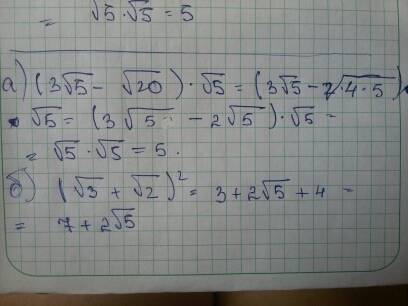 = √5 · √5 = 5
а) (3√5 - √20) · √5 = (3√5 - √4·5) ·
· √5 = (3√5 - 2√5) · √5 =
= √5 · √5 = 5.
б) (√3 + √2)² = 3 + 2√5 + 4 =
= 7 + 2√5